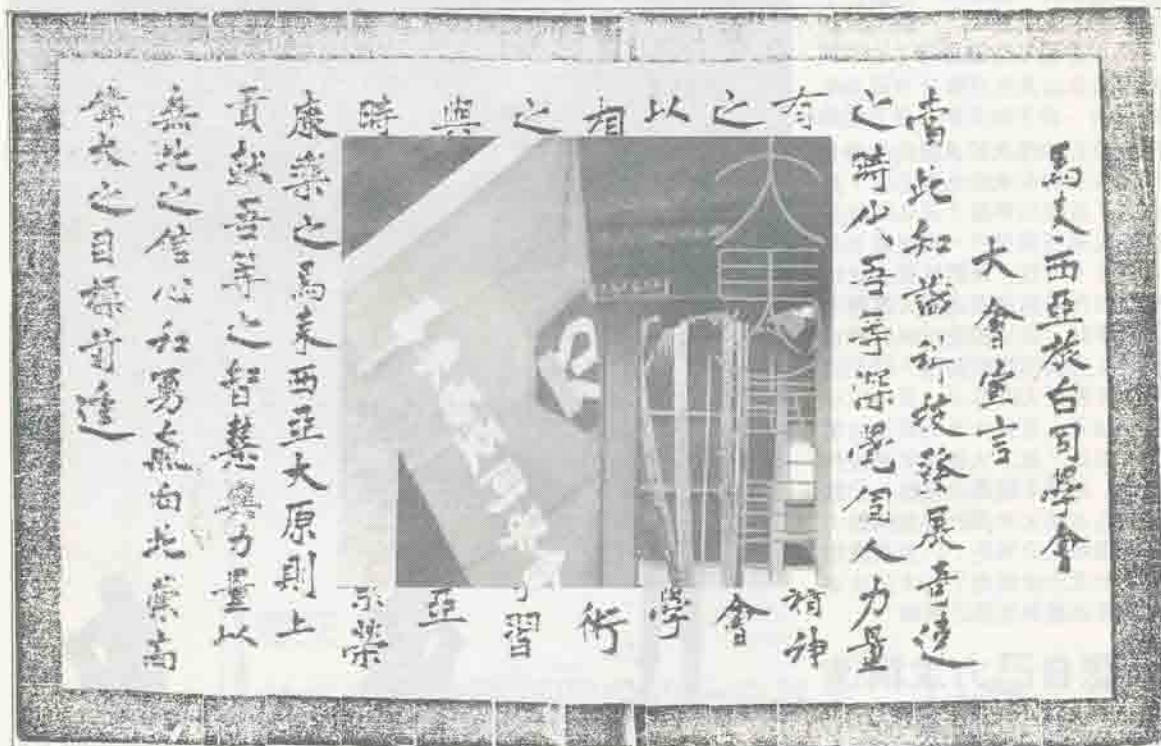 馬來西亞旅台同學會
大會宣言
當此知識科技發展奇速
之時代、吾等深覺個人力量
有
精神
之
會
以
學
相
術
之
習
與
亞
時
榮
康樂之馬來西亞大原則上
貢獻吾等之智慧與力量以
無比之信心和勇氣向此崇高
偉大之目標前進
大馬